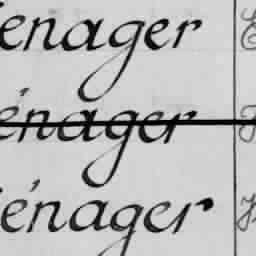 enager
énager
énager